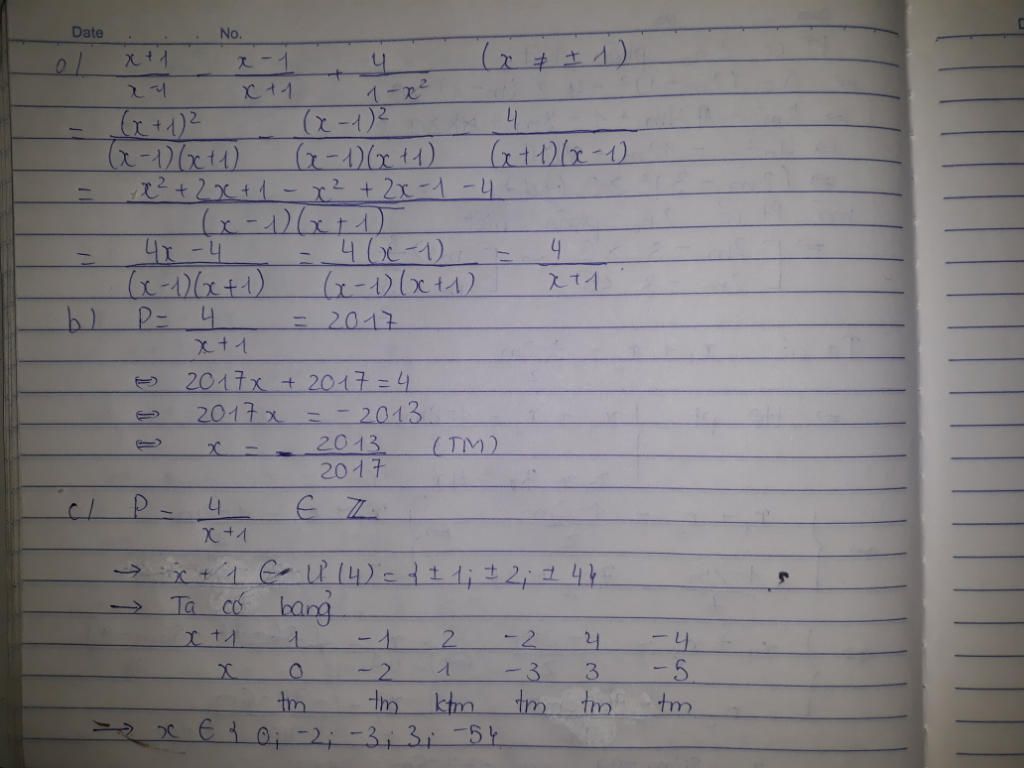 Date . . . No.
a/ x+1/x-1 - x-1/x+1 + 4/1-x² (x ≠ ±1)
= (x+1)²/(x-1)(x+1) - (x-1)²/(x-1)(x+1) - 4/(x+1)(x-1)
= x²+2x+1-x²+2x-1-4/(x-1)(x+1)
= 4x-4/(x-1)(x+1) = 4(x-1)/(x-1)(x+1) = 4/x+1
b) P= 4/x+1 = 2017
⇔ 2017x + 2017 = 4
⇔ 2017x = -2013
⇔ x = - 2013/2017 (TM)
c/ P = 4/x+1 ∈ ℤ
→ x+1 ∈ Ư(4) = {±1; ±2; ±4}
→ Ta có bảng
x+1 1 -1 2 -2 4 -4
x 0 -2 1 -3 3 -5
tm tm ktm tm tm tm
=> x ∈ { 0; -2; -3; 3; -5}